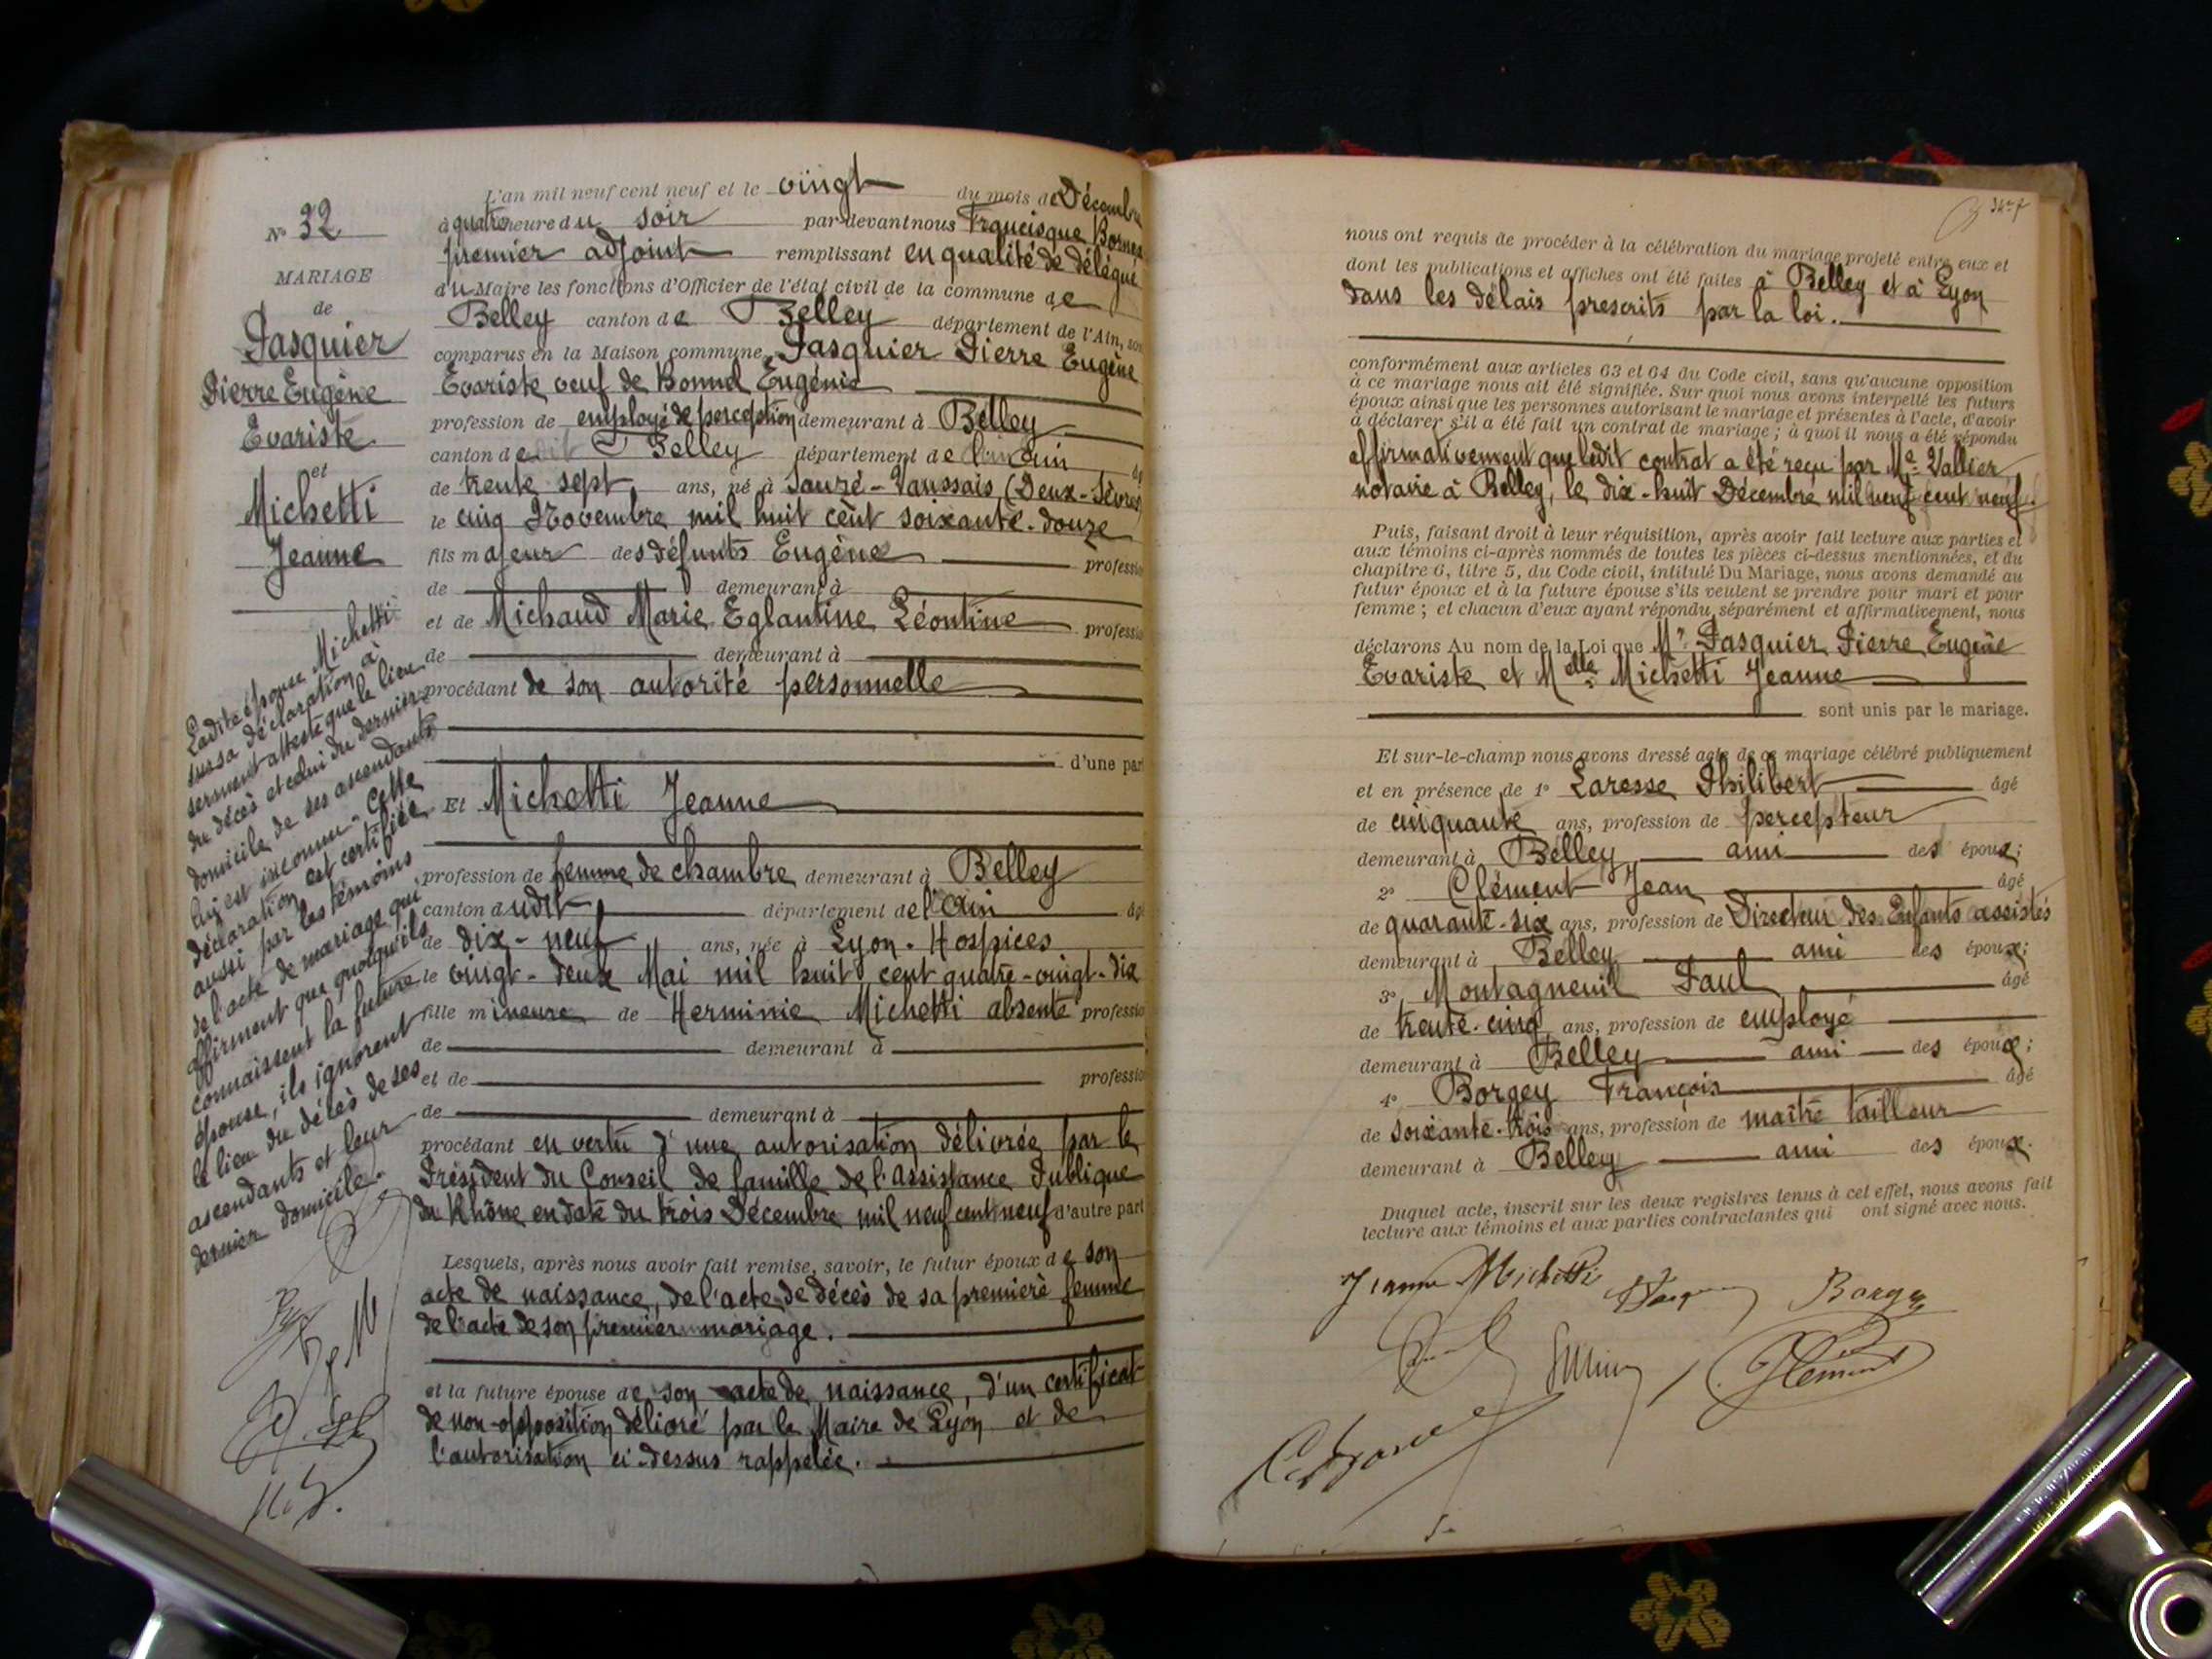 N° 32
MARIAGE
de
Pasquier
Pierre Eugène
Evariste
et
Michetti
Jeanne
Ladite épouse Michetti
sur sa déclaration à
serment atteste que le lieu
du décès et celui du dernier
domicile de ses ascendants
lui est inconnu - Cette
déclaration est certifiée
aussi par les témoins
de l'acte de mariage qui
affirment que quoiqu'ils
connaissent la future
épouse, ils ignorent
le lieu du décès de ses
ascendants et leur
dernier domicile.
L'an mil neuf cent neuf et le vingt du mois de Décembre
à quatre heure du soir par-devant nous Francisque
premier adjoint remplissant en qualité de délégué
du Maire les fonctions d'Officier de l'état civil de la commune de
Belley canton de Belley département de l'Ain, son
comparus en la Maison commune, Pasquier Pierre Eugène
Evariste veuf de Bonnel Eugénie
profession de employé de perception demeurant à Belley
canton de Belley département de l'ain
de trente sept ans, né à Sauzé-Vaussais (Deux-Sèvres)
le cinq Novembre mil huit cent soixante-douze
fils majeur des défunts Eugène professio
de demeurant à
et de Michaud Marie Eglantine Léontine professio
de demeurant à
procédant de son autorité personnelle
d'une par
Et Michetti Jeanne
profession de femme de chambre demeurant à Belley
canton dudit département de l'ain âg
de dix-neuf ans, née à Lyon-Hospices
le vingt-deux Mai mil huit cent quatre-vingt-dix
fille mineure de Herminie Michetti absente professio
de demeurant à
et de professio
de demeurant à
procédant en vertu d'une autorisation délivrée par le
Président du Conseil de famille de l'Assistance Publique
du Rhône en date du trois Décembre mil neuf cent neuf d'autre part
Lesquels, après nous avoir fait remise, savoir, le futur époux de son
acte de naissance, de l'acte de décès de sa première femme
de l'acte de son premier mariage.
et la future épouse de son acte de naissance, d'un certificat
de non-opposition délivré par le Maire de Lyon et de
l'autorisation ci-dessus rappelée.
nous ont requis de procéder à la célébration du mariage projeté entre eux et
dont les publications et affiches ont été faites à Belley et à Lyon
dans les délais prescrits par la loi.
conformément aux articles 63 et 64 du Code civil, sans qu'aucune opposition
à ce mariage nous ait été signifiée. Sur quoi nous avons interpellé les futurs
époux ainsi que les personnes autorisant le mariage et présentes à l'acte, d'avoir
à déclarer s'il a été fait un contrat de mariage ; à quoi il nous a été répondu
affirmativement que ledit contrat a été reçu par Me Vallier,
notaire à Belley, le dix-huit Décembre mil neuf cent neuf.
Puis, faisant droit à leur réquisition, après avoir fait lecture aux parties et
aux témoins ci-après nommés de toutes les pièces ci-dessus mentionnées, et du
chapitre 6, titre 5, du Code civil, intitulé Du Mariage, nous avons demandé au
futur époux et à la future épouse s'ils veulent se prendre pour mari et pour
femme ; et chacun d'eux ayant répondu séparément et affirmativement, nous
déclarons Au nom de la Loi que Mr Pasquier Pierre Eugène
Evariste et Melle Michetti Jeanne
sont unis par le mariage.
Et sur-le-champ nous avons dressé acte de ce mariage célébré publiquement
et en présence de 1° Laresse Philibert âgé
de cinquante ans, profession de percepteur
demeurant à Belley ami des époux;
2° Clément Jean âgé
de quarante-six ans, profession de Directeur des Enfants assistés
demeurant à Belley ami des époux;
3° Montagneuil Paul âgé
de trente-cinq ans, profession de employé
demeurant à Belley ami des époux;
4° Borgey François âgé
de soixante-trois ans, profession de maître tailleur
demeurant à Belley ami des époux.
Duquel acte, inscrit sur les deux registres tenus à cet effet, nous avons fait
lecture aux témoins et aux parties contractantes qui ont signé avec nous.
Jeanne Michetti Borgey
Clément